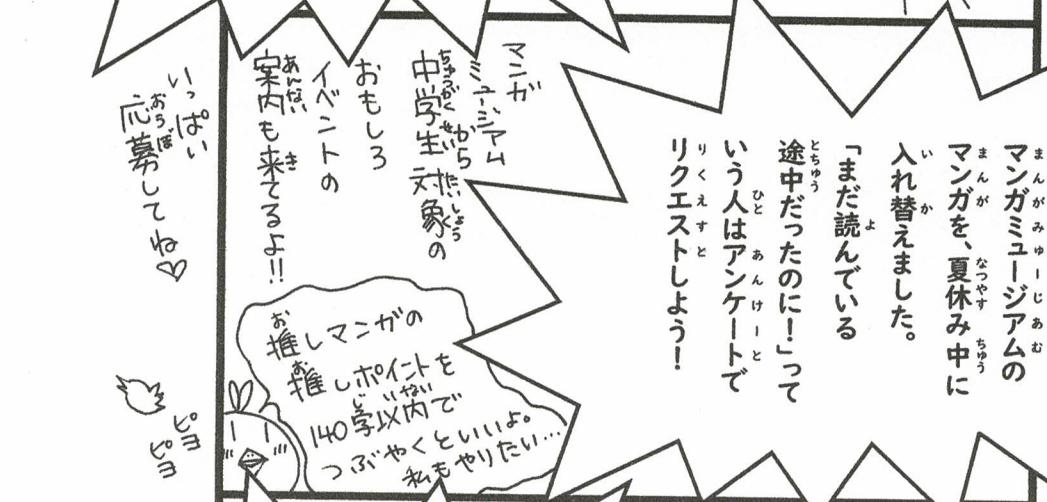 マンガミュージアムの
マンガを、夏休み中に
入れ替えました。
「まだ読んでいる
途中だったのに！」って
いう人はアンケートで
リクエストしよう！
マンガ
ミュージアム
から
中学生対象の
おもしろ
イベントの
案内も来てるよ!!
推しマンガの
推しポイントを
140字以内で
つぶやくといいよ。
私もやりたい…
いっぱい
応募してね♡
ピヨ
ピヨ